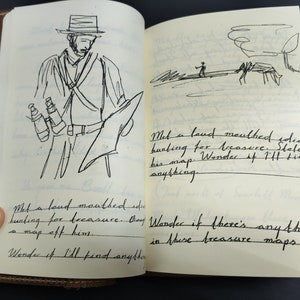 Met a loud mouthed
hunting for treasure.
a map off him.
Wonder if I'll find anything
Met a loud mouthed
hunting for treasure.
his map. Wonder if I'll
anything.
Wonder if there's
in these treasure maps